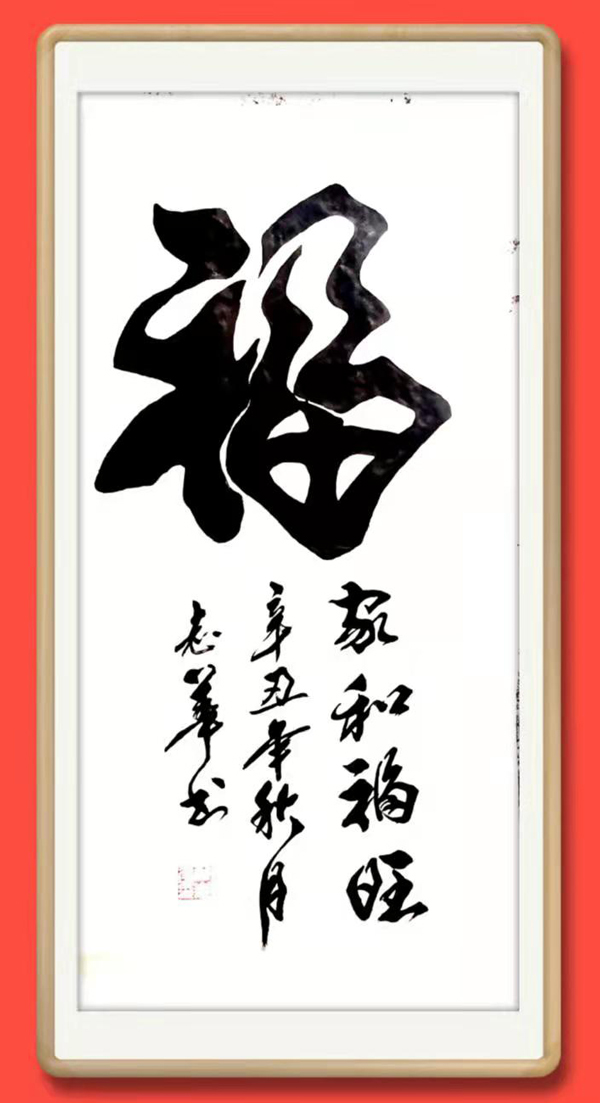 福
家和福旺
辛丑年秋月
志華书